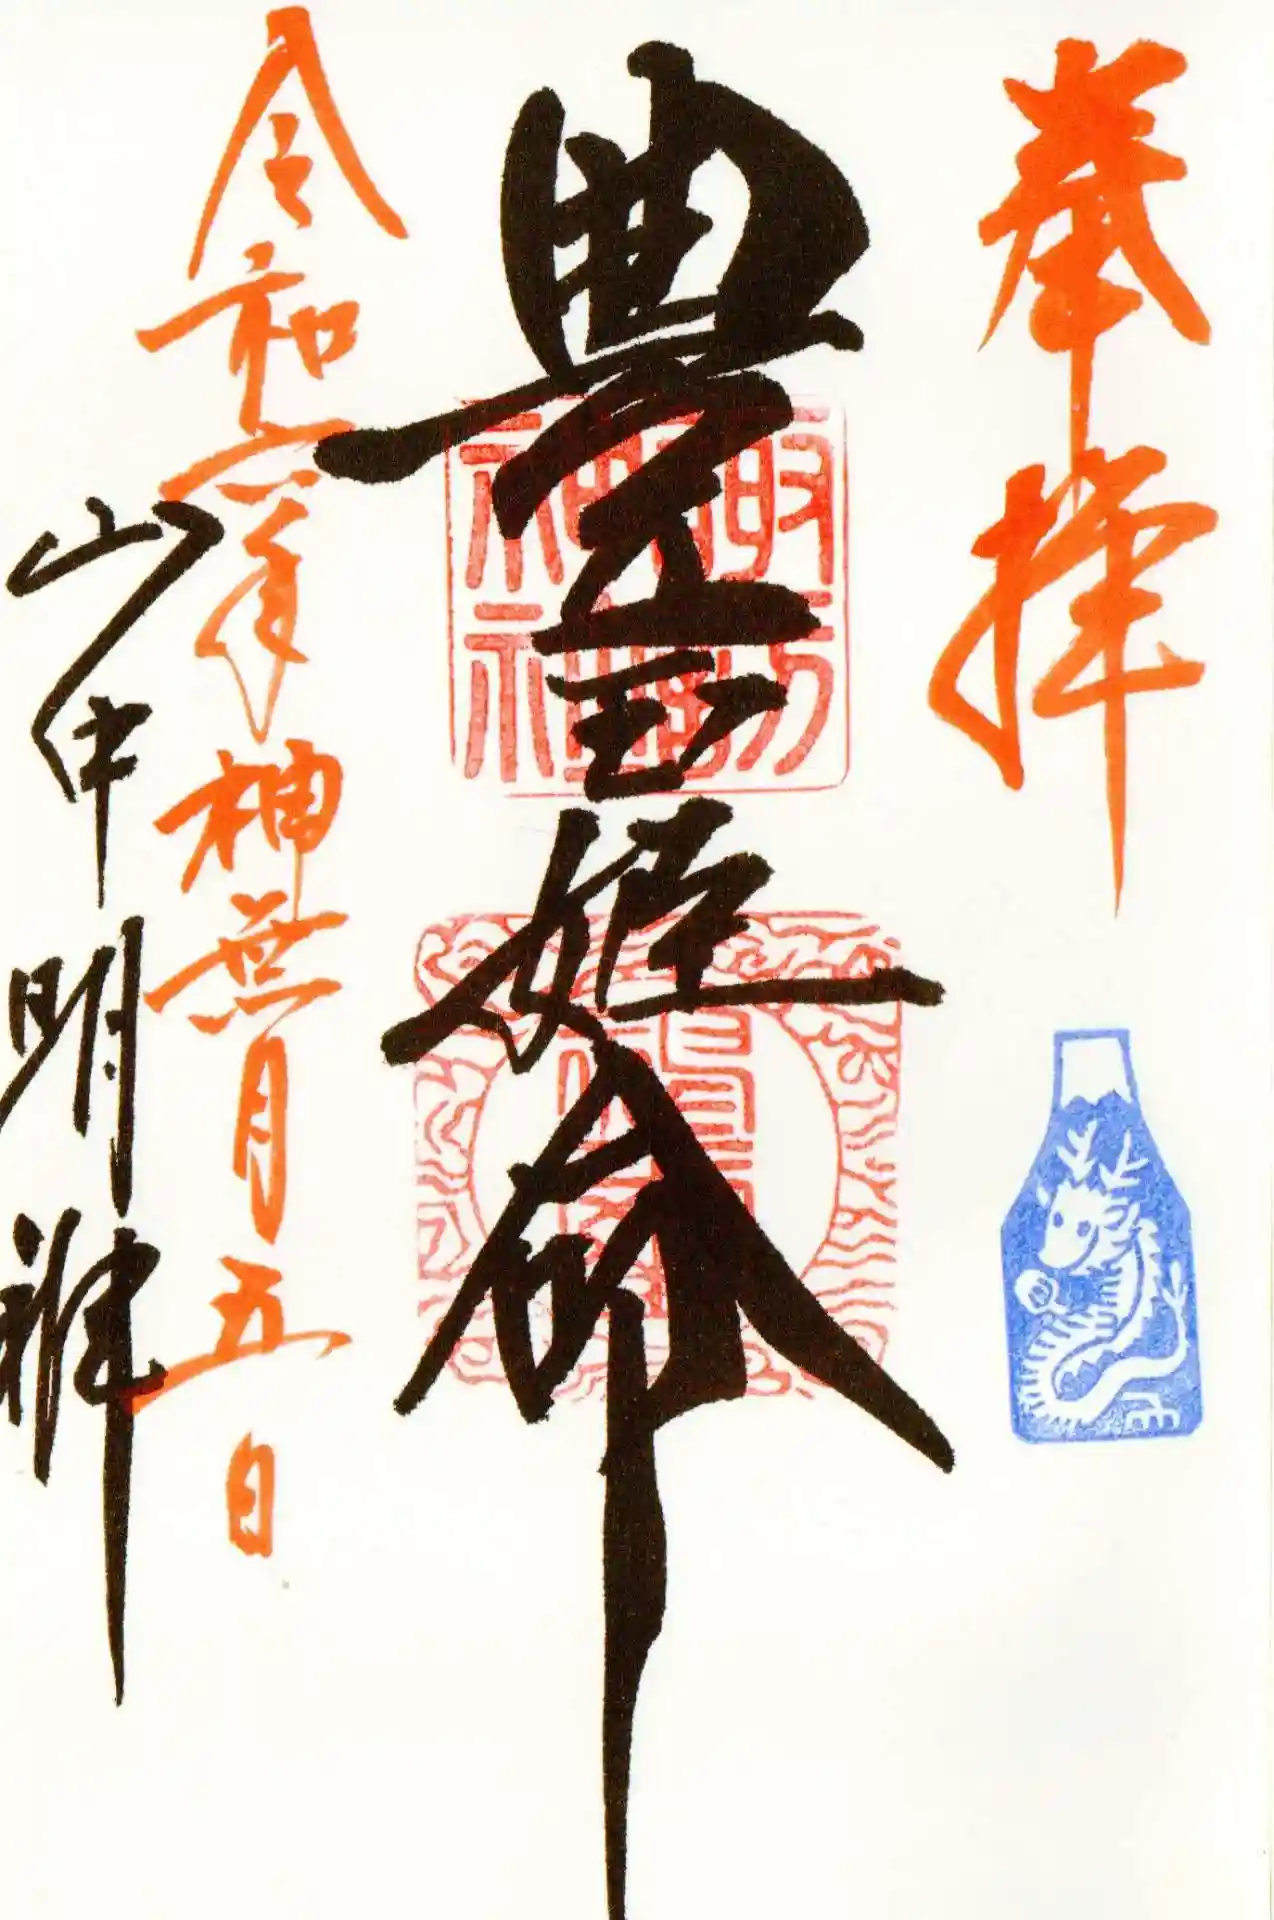 奉拝
豊玉姫命
令和六年神無月五日
山中明神